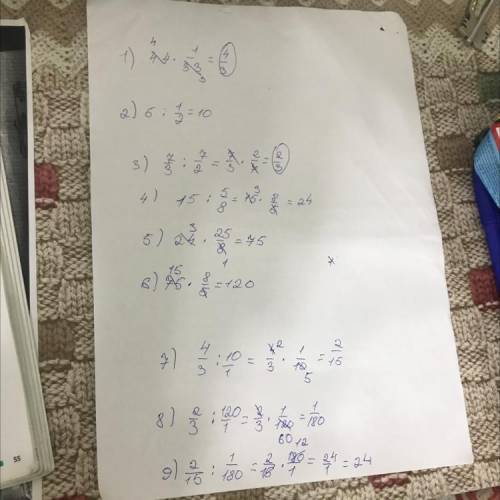 1) 44 · 1/33 = 4/3
2) 5 : 1/2 = 10
3) 7/3 : 7/2 = 7/3 · 2/7 = 2/3
4) 15 : 5/8 = 15 · 8/5 = 24
5) 24 · 25/8 = 75
6) · 8/ = 120
7) 4/3 : 10/1 = 4/3 · 1/10 = 2/15
8) 2/3 : 120/1 = 2/3 · 1/120 = 1/180
9) 2/15 : 1/180 = 2/15 · 180/1 = 24/1 = 24
55